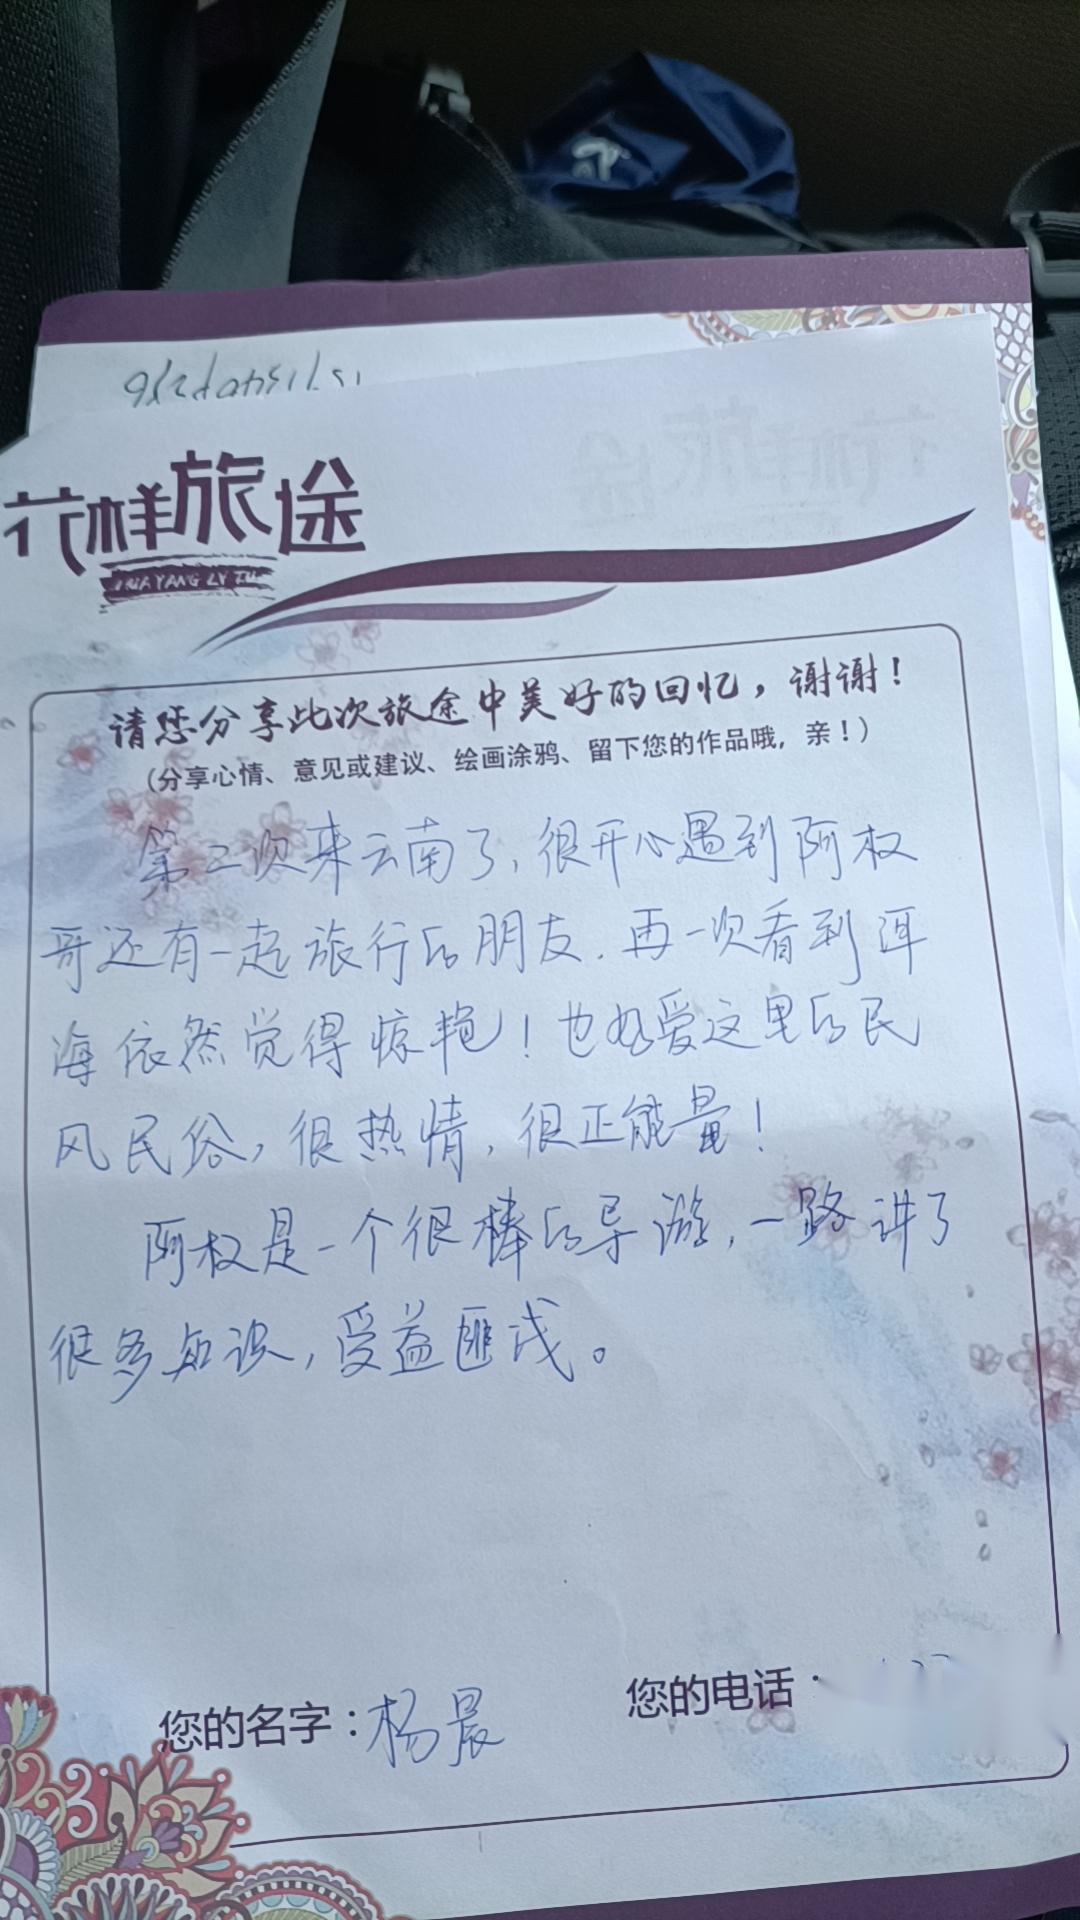 花样旅途
HUAYANG LV TU
请您分享此次旅途中美好的回忆，谢谢！
（分享心情、意见或建议、绘画涂鸦、留下您的作品哦，亲！）
第二次来云南了，很开心遇到阿权
哥还有一起旅行的朋友．再一次看到洱
海依然觉得惊艳！也好爱这里的民
风民俗，很热情，很正能量！
阿权是一个很棒的导游，一路讲了
很多知识，受益匪浅。
您的名字：杨晨
您的电话：